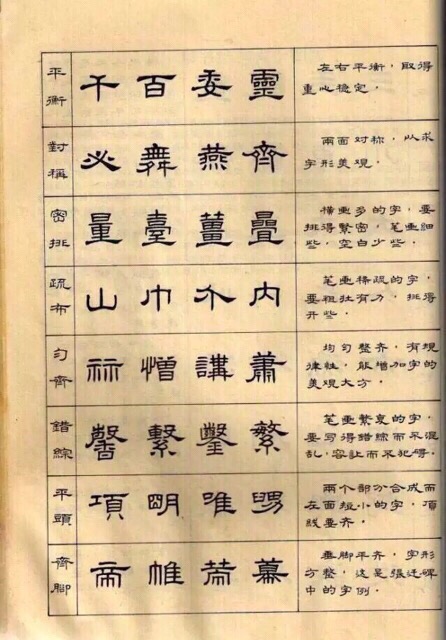 平衡
千百委靈
左右平衡，取得
重心稳定。
對稱
必舞燕齊
兩面对称，以求
字形美观。
密排
量臺薑疊
横画多的字，要
排得紧密，笔画细
些，空白少些。
疏布
山巾介内
笔画稀疏的字，
要粗壮有力，排得
开些。
匀齊
憎講蕭
均匀整齐，有规
律性，能增加字的
美观大方。
錯綜
馨繫鑿繁
笔画繁复的字，
要写得錯綜而不混
乱，容让而不犯碍。
平頭
項明唯
两个部分合成而
左面短小的字，頂
线要齐。
齊脚
帝帷常幕
垂脚平齐，字形
方整，这是張迁碑
中的字例。